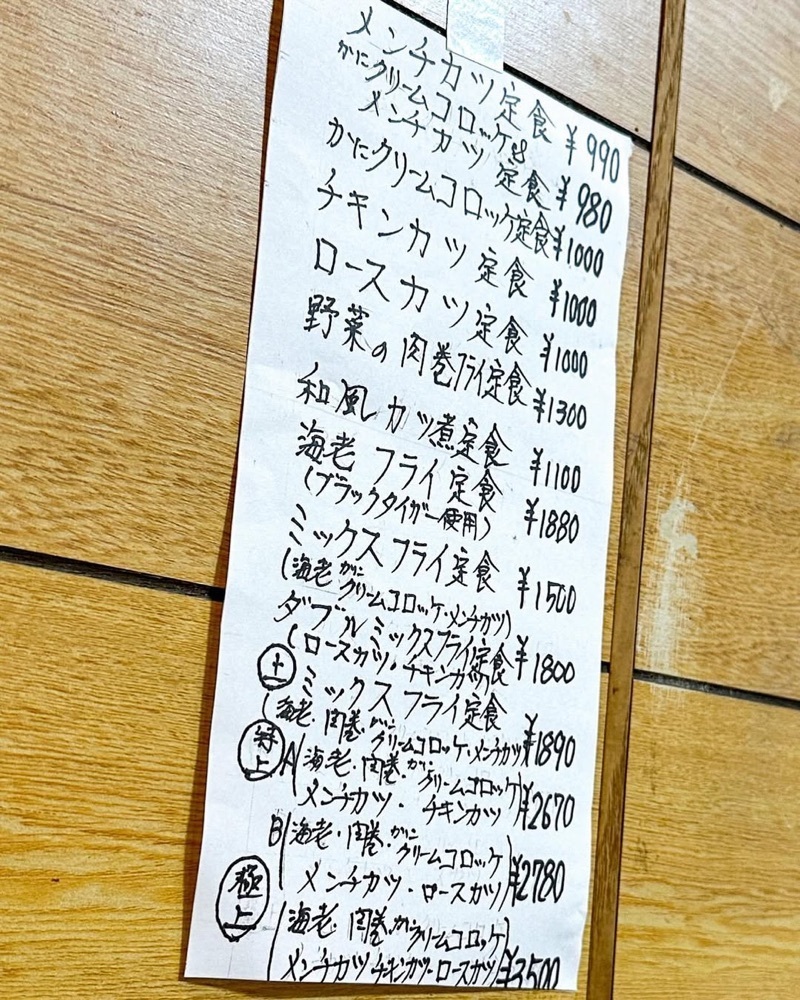 メンチカツ定食 ¥990
かにクリームコロッケ&
メンチカツ 定食 ¥980
かにクリームコロッケ定食 ¥1000
チキンカツ定食 ¥1000
ロースカツ定食 ¥1000
野菜の肉巻フライ定食 ¥1300
和風カツ煮定食 ¥1100
海老フライ定食 ¥1880
(ブラックタイガー使用)
ミックスフライ定食 ¥1500
(海老 かにクリームコロッケ・メンチカツ)
ダブルミックスフライ定食 ¥1800
(ロースカツ・チキンカツ)
上 ミックスフライ定食
(海老・肉巻・かにクリームコロッケ・メンチカツ ¥1890
特上 A (海老・肉巻・かにクリームコロッケ
メンチカツ・チキンカツ) ¥2670
B (海老・肉巻・かにクリームコロッケ
メンチカツ・ロースカツ) ¥2780
極上 (海老・肉巻・かにクリームコロッケ
メンチカツ チキンカツ・ロースカツ) ¥3500